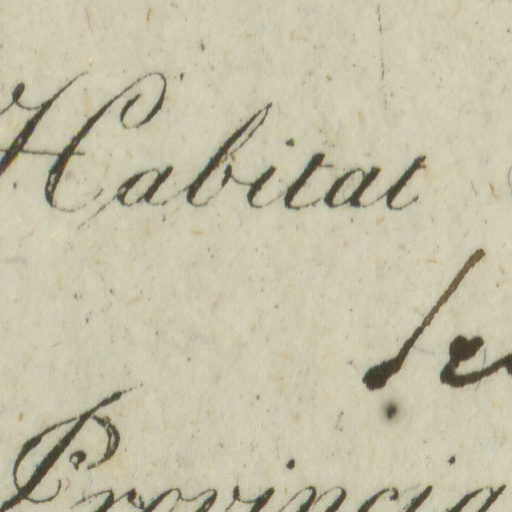 Habitat
Provincia